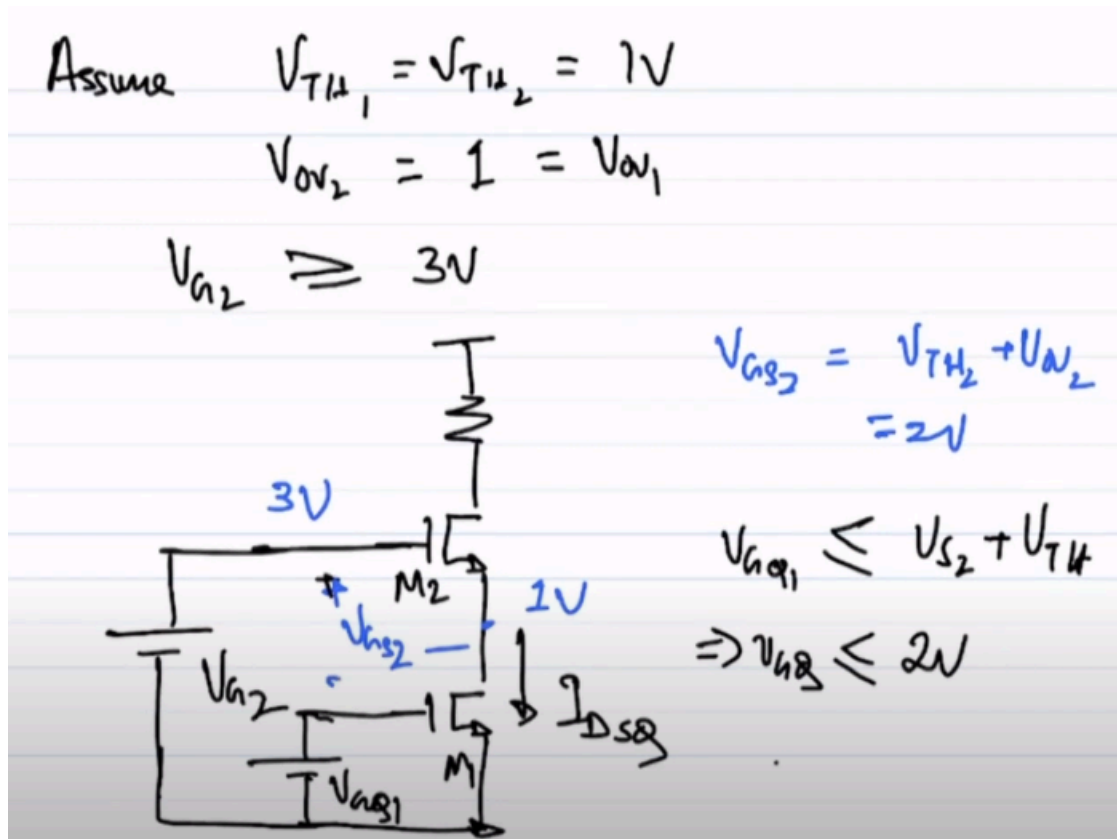 Assume V_TH₁ = V_TH₂ = 1V
V_OV₂ = 1 = V_OV₁
V_G₂ ≥ 3V
V_GS₂ = V_TH₂ + V_OV₂
= 2V
3V
M₂
V_GQ₁ ≤ V_S₂ + V_TH
+
1V
V_GS₂ –
⇒ V_GQ ≤ 2V
V_G₂
I_DSQ
M₁
V_GQ₁